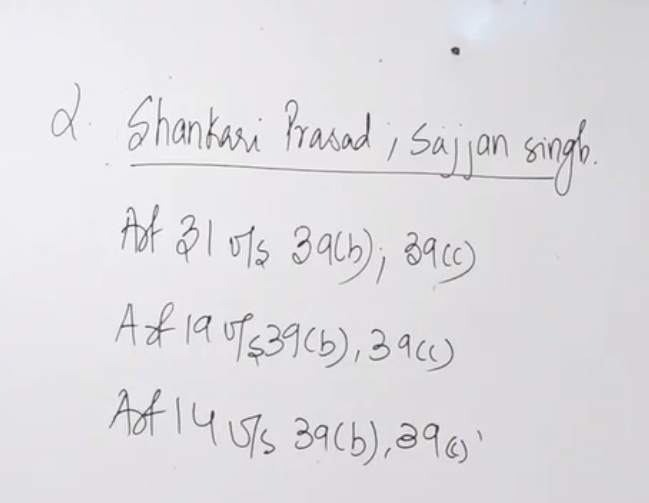 2. Shankari Prasad, Sajjan singh.
Art 31 v/s 39(b), 39(c)
Art 19 v/s 39(b), 39(c)
Art 14 v/s 39(b), 39(c)